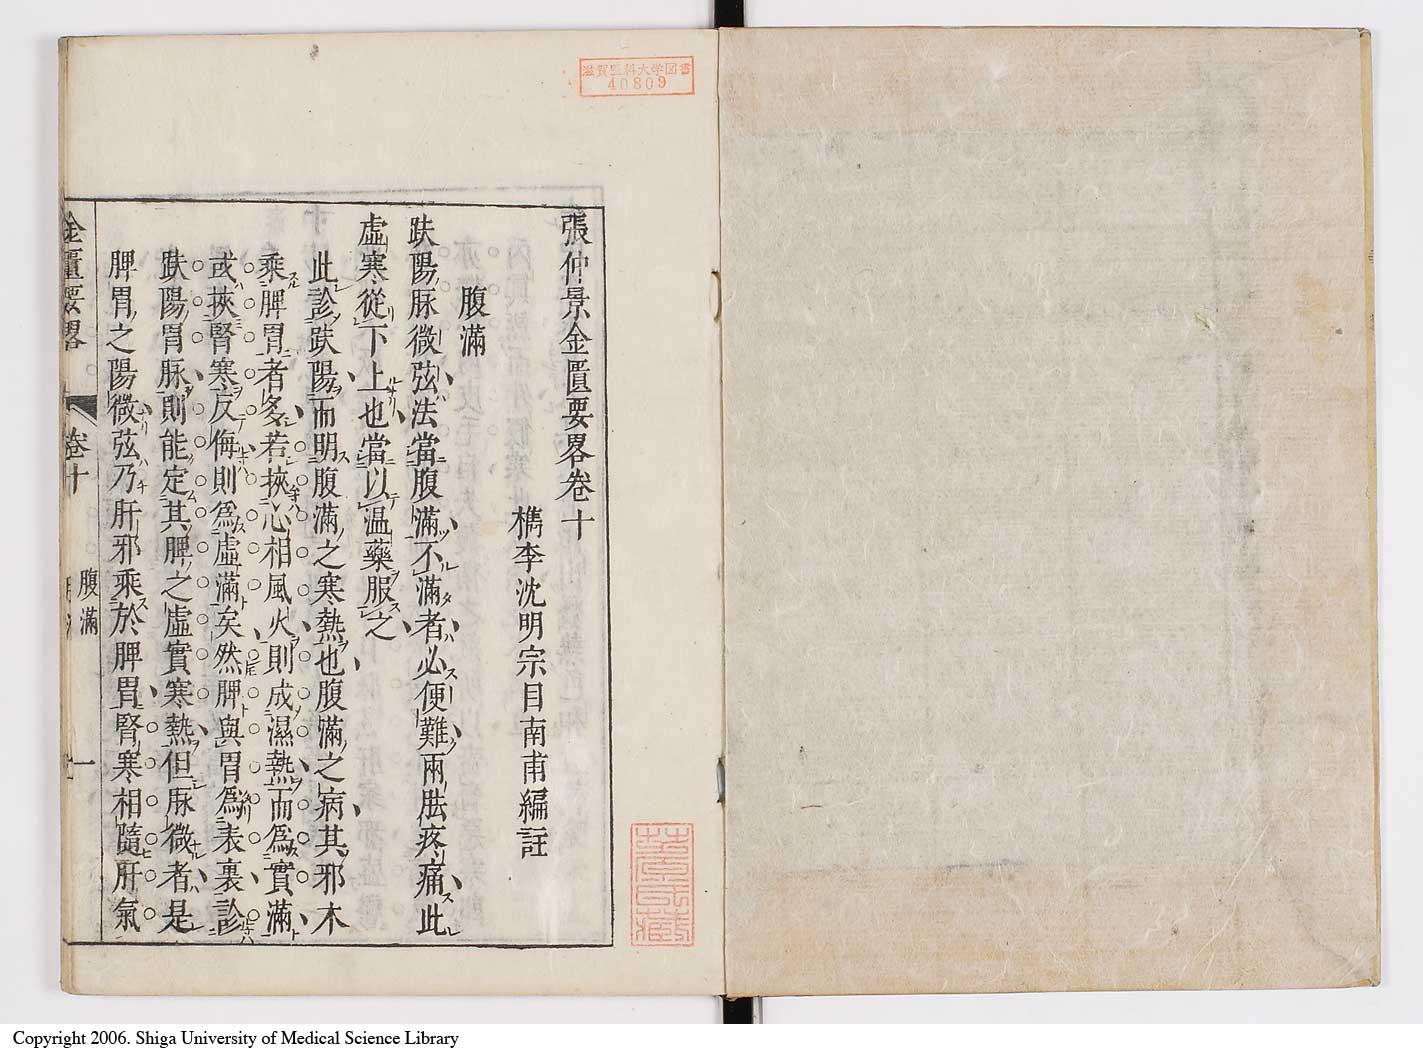 滋賀医科大学図書
40809
張仲景金匱要畧卷十
檇李沈明宗目南甫編註
腹滿
趺陽脉微弦法當腹滿不滿者必便難兩胠疼痛此
虛寒從下上也當以温藥服之
此診趺陽而明腹滿之寒熱也腹滿之病其邪木
乘脾胃者多若挾心相風火則成濕熱而爲實滿
或挾腎寒反侮則爲虛滿矣然脾與胃爲表裏診
趺陽胃脉則能定其脾之虛實寒熱但脉微者是
脾胃之陽微弦乃肝邪乘於脾胃腎寒相隨肝氣
金匱要畧
卷十
腹滿
一
Copyright 2006. Shiga University of Medical Science Library